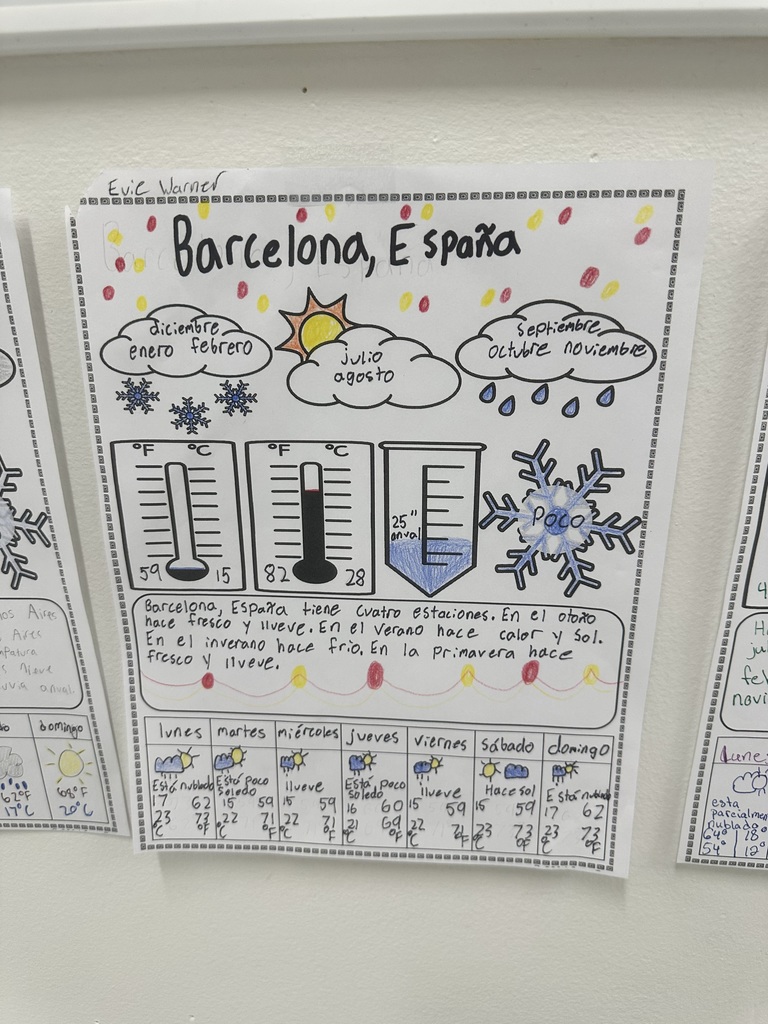 Evie Warner
Barcelona, España
diciembre
enero febrero
julio
agosto
septiembre
octubre noviembre
°F °C
59 15
°F °C
82 28
25"
anual
POCO
Barcelona, España tiene cuatro estaciones. En el otoño
hace fresco y llueve. En el verano hace calor y sol.
En el inverano hace frío. En la primavera hace
fresco y llueve.
lunes martes miércoles jueves viernes sábado domingo
Está nublado
17 62
23 73
°C °F
Está poco
soledo
15 59
22 71
°C °F
llueve
15 59
22 71
°C °F
Está poco
soledo
16 60
21 69
°C °F
llueve
15 59
22 71
°C °F
Hace sol
15 59
23 73
°C °F
Está nublado
17 62
23 73
°C °F
nos Aires
Aires
llueve
uvia anual
domingo
62°F
17°C
68°F
20°C
Lunes
esta
parcialmen
nublado
64° 18°
54° 12°